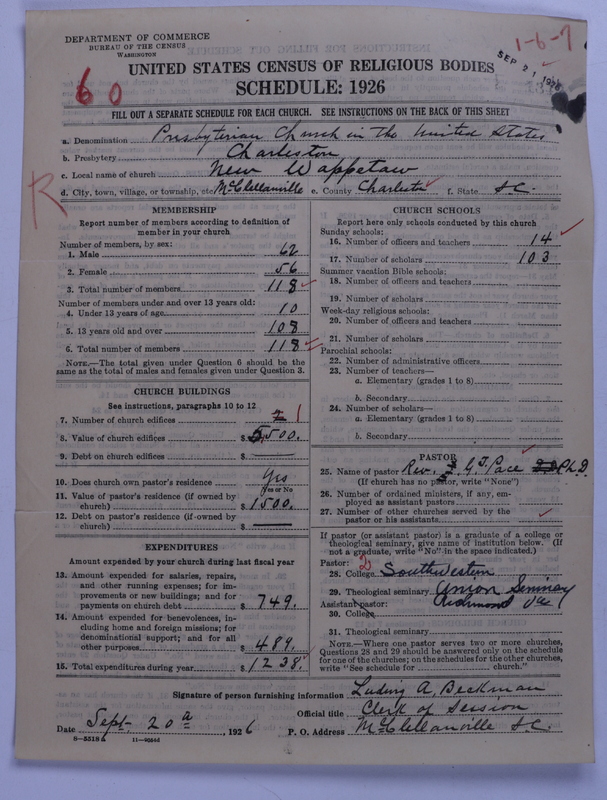 DEPARTMENT OF COMMERCE
BUREAU OF THE CENSUS
WASHINGTON
1-6-7
SEP 21 1926
60
UNITED STATES CENSUS OF RELIGIOUS BODIES
SCHEDULE: 1926
FILL OUT A SEPARATE SCHEDULE FOR EACH CHURCH. SEE INSTRUCTIONS ON THE BACK OF THIS SHEET
a. Denomination Presbyterian Church in the United States
b. Presbytery Charleston
c. Local name of church New Wappetaw
d. City, town, village, or township, etc. McClellanville e. County Charleston f. State S.C.
R
MEMBERSHIP
Report number of members according to definition of member in your church
Number of members, by sex:
1. Male 62
2. Female 56
3. Total number of members 118
Number of members under and over 13 years old:
4. Under 13 years of age 10
5. 13 years old and over 108
6. Total number of members 118
NOTE.—The total given under Question 6 should be the same as the total of males and females given under Question 3.
CHURCH BUILDINGS
See instructions, paragraphs 10 to 12
7. Number of church edifices 1
8. Value of church edifices $5,500.
9. Debt on church edifices $
10. Does church own pastor's residence? Yes
Yes or No
11. Value of pastor's residence (if owned by church) $1500.
12. Debt on pastor's residence (if owned by church) $
EXPENDITURES
Amount expended by church during last fiscal year
13. Amount expended for salaries, repairs, and other running expenses; for improvements or new buildings; and for payments on church debt $749.
14. Amount expended for benevolences, including home and foreign missions; for denominational support; and for all other purposes $489.
15. Total expenditures during year $1238.
CHURCH SCHOOLS
Report here only schools conducted by this church
Sunday schools:
16. Number of officers and teachers 14
17. Number of scholars 103
Summer vacation Bible schools:
18. Number of officers and teachers
19. Number of scholars
Week-day religious schools:
20. Number of officers and teachers
21. Number of scholars
Parochial schools:
22. Number of administrative officers
23. Number of teachers—
a. Elementary (grades 1 to 8)
b. Secondary
24. Number of scholars—
a. Elementary (grades 1 to 8)
b. Secondary
PASTOR
25. Name of pastor Rev. Pace Ph.D.
(If church has no pastor, write "None")
26. Number of ordained ministers, if any, employed as assistant pastors
27. Number of other churches served by the pastor or his assistants
If pastor (or assistant pastor) is a graduate of a college or theological seminary, give name of institution below. (If not a graduate, write "No" in the space indicated.)
Pastor: 2
28. College Southwestern
29. Theological seminary Union Seminary
Assistant pastor: Richmond Va
30. College
31. Theological seminary
NOTE.—Where one pastor serves two or more churches, Questions 28 and 29 should be answered only on the schedule for one of the churches; on the schedules for the other churches, write "See schedule for church."
Signature of person furnishing information Ludwig A. Beckman
Official title Clerk of Session
Date Sept. 20, 1926 P. O. Address McClellanville S.C.